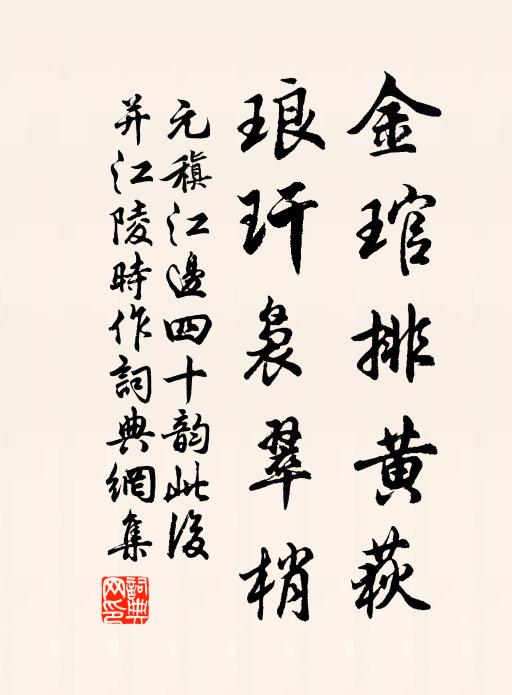 金琯排黄荻
琅玕裊翠梢
元稹江邊四十韵此後
并江陵時作詞典網集
詞典網印